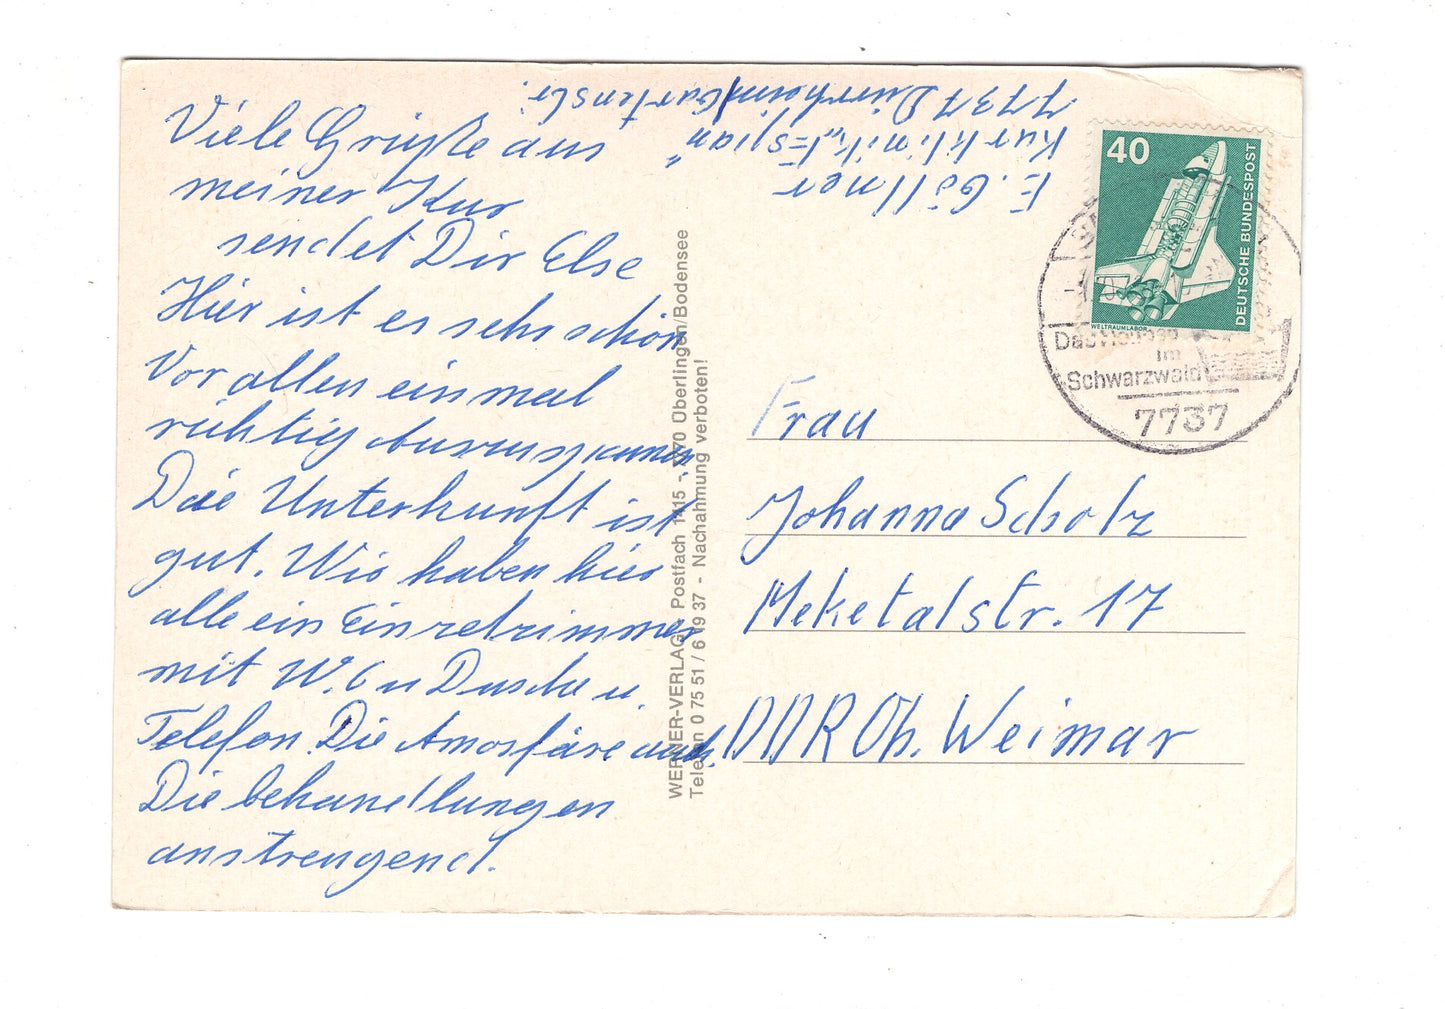 Viele Grüße aus
meiner Kur
sendet Dir Else
Hier ist es sehr schön
Vor allen einmal
richtig
Die Unterkunft ist
gut. Wir haben hier
alle ein Einzelzimmer
mit W.C u Dusche u.
Telefon. Die Atmosfäre auch.
Die behandlungen
anstrengend.
E. Göllner
Kurklinik
7737 Dürrheim Gartenstr.
40
DEUTSCHE BUNDESPOST
WELTRAUMLABOR
im
Schwarzwald
7737
Frau
Johanna Scholz
Meketalstr. 17
DDR Oh. Weimar
WERNER-VERLAG - Postfach 1415 - 7770 Überlingen/Bodensee
Telefon 0 75 51 / 6 19 37 - Nachahmung verboten!